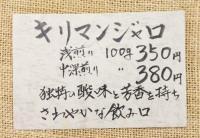 キリマンジャロ
浅煎り 100g 350円
中深煎り 〃 380円
独特な酸味と芳香を持ち
さわやかな飲み口